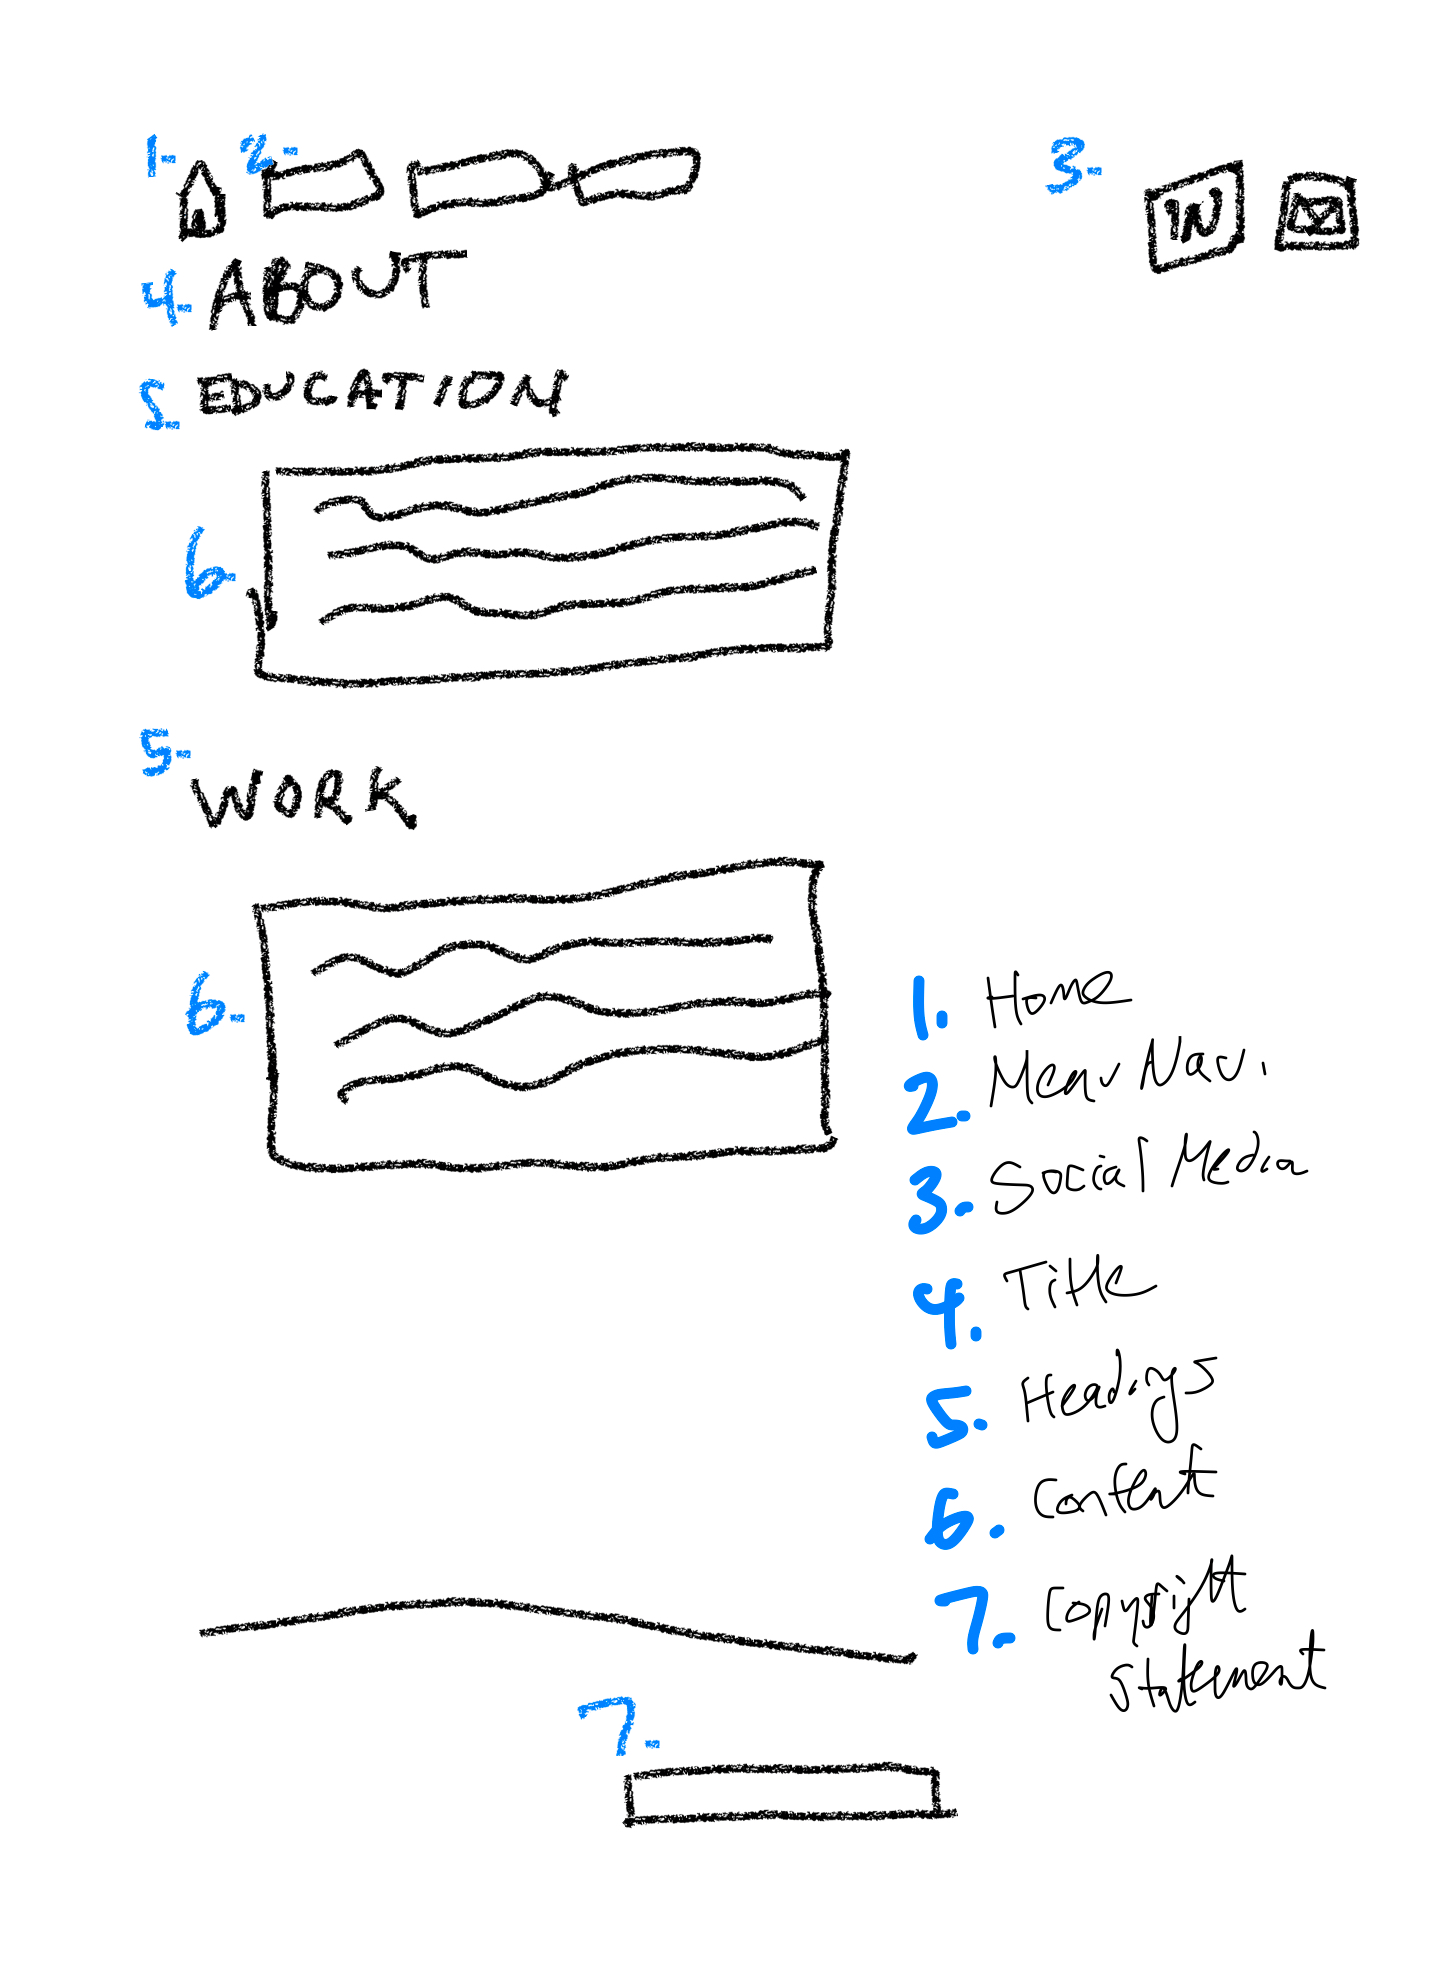 1- 2- 3-
IN
4- ABOUT
5- EDUCATION
6-
5-
WORK
6-
1. Home
2. Menu Nav.
3. Social Media
4. Title
5. Headings
6. Content
7. Copyright
Statement
7-